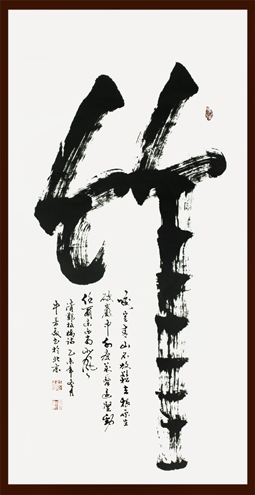 竹
咬定青山不放鬆立根原在
破岩中千磨萬擊還堅勁
任爾東西南北風
清鄭板橋詩乙未年月
牛書於北京